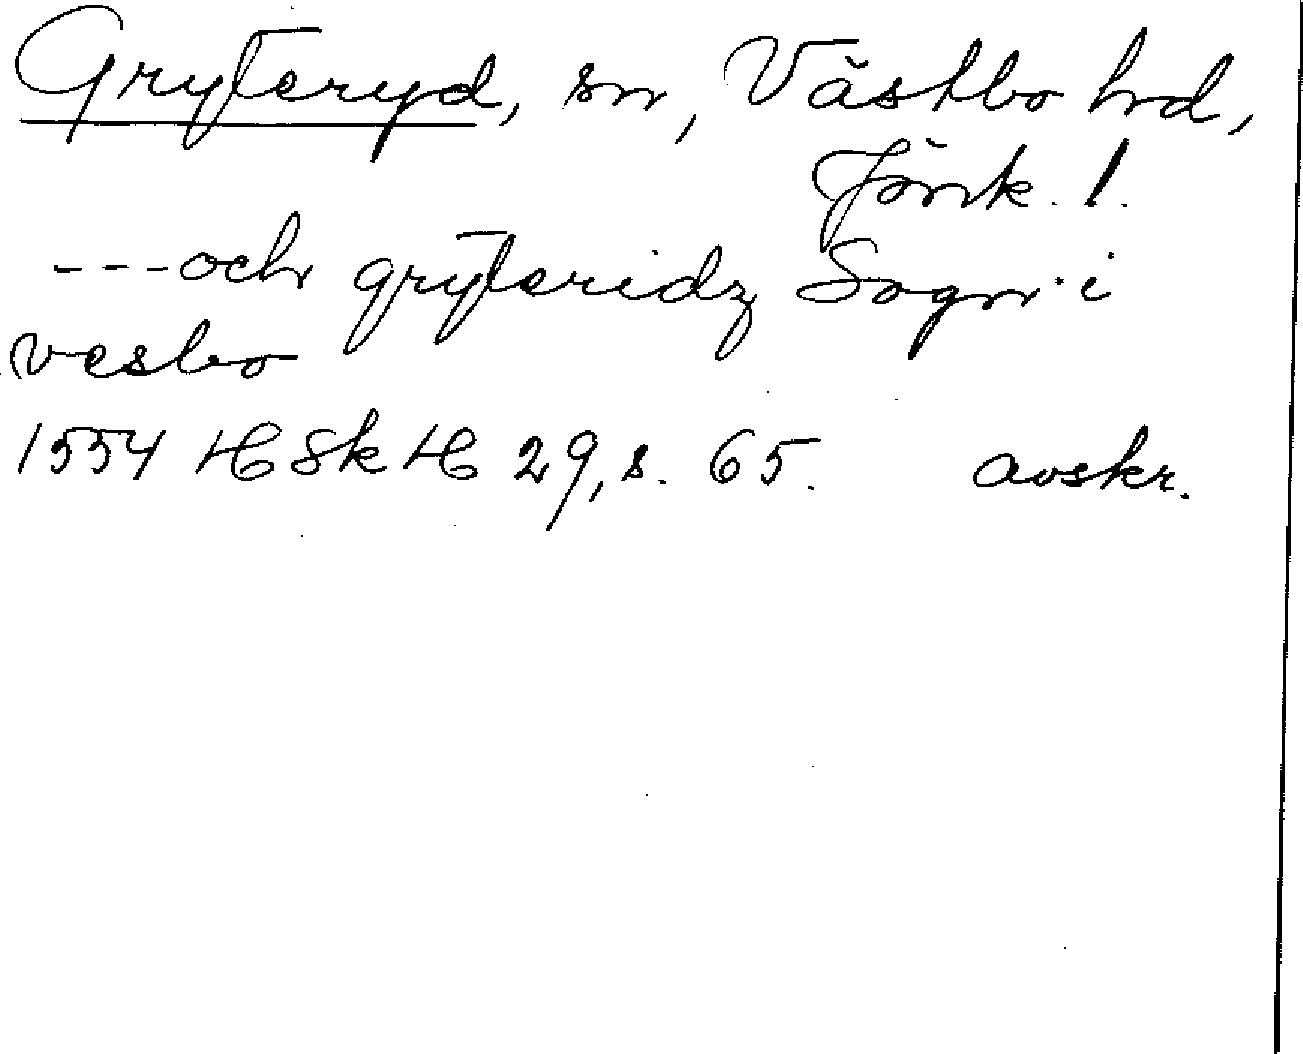 Gryteryd, sn, Västbo hrd,
Jönk. l.
---och gryteridz Sogn i
vesbo
1554 HSkH 29, s. 65. avskr.